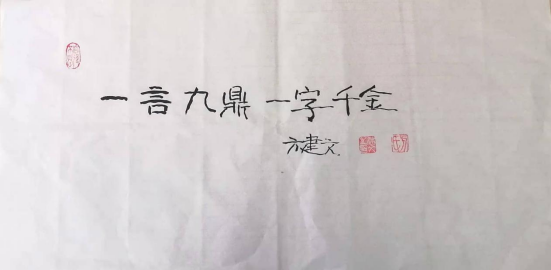 一言九鼎一字千金
方建文